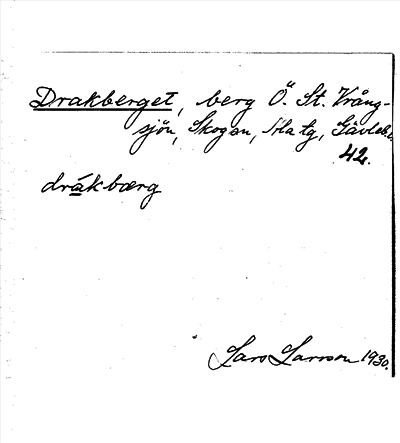 Drakberget, berg Ö. St. Vrång-
sjön, Skogen, Hla tg, Gävleb.
42.
drákbærg
Lars Larsson 1930.